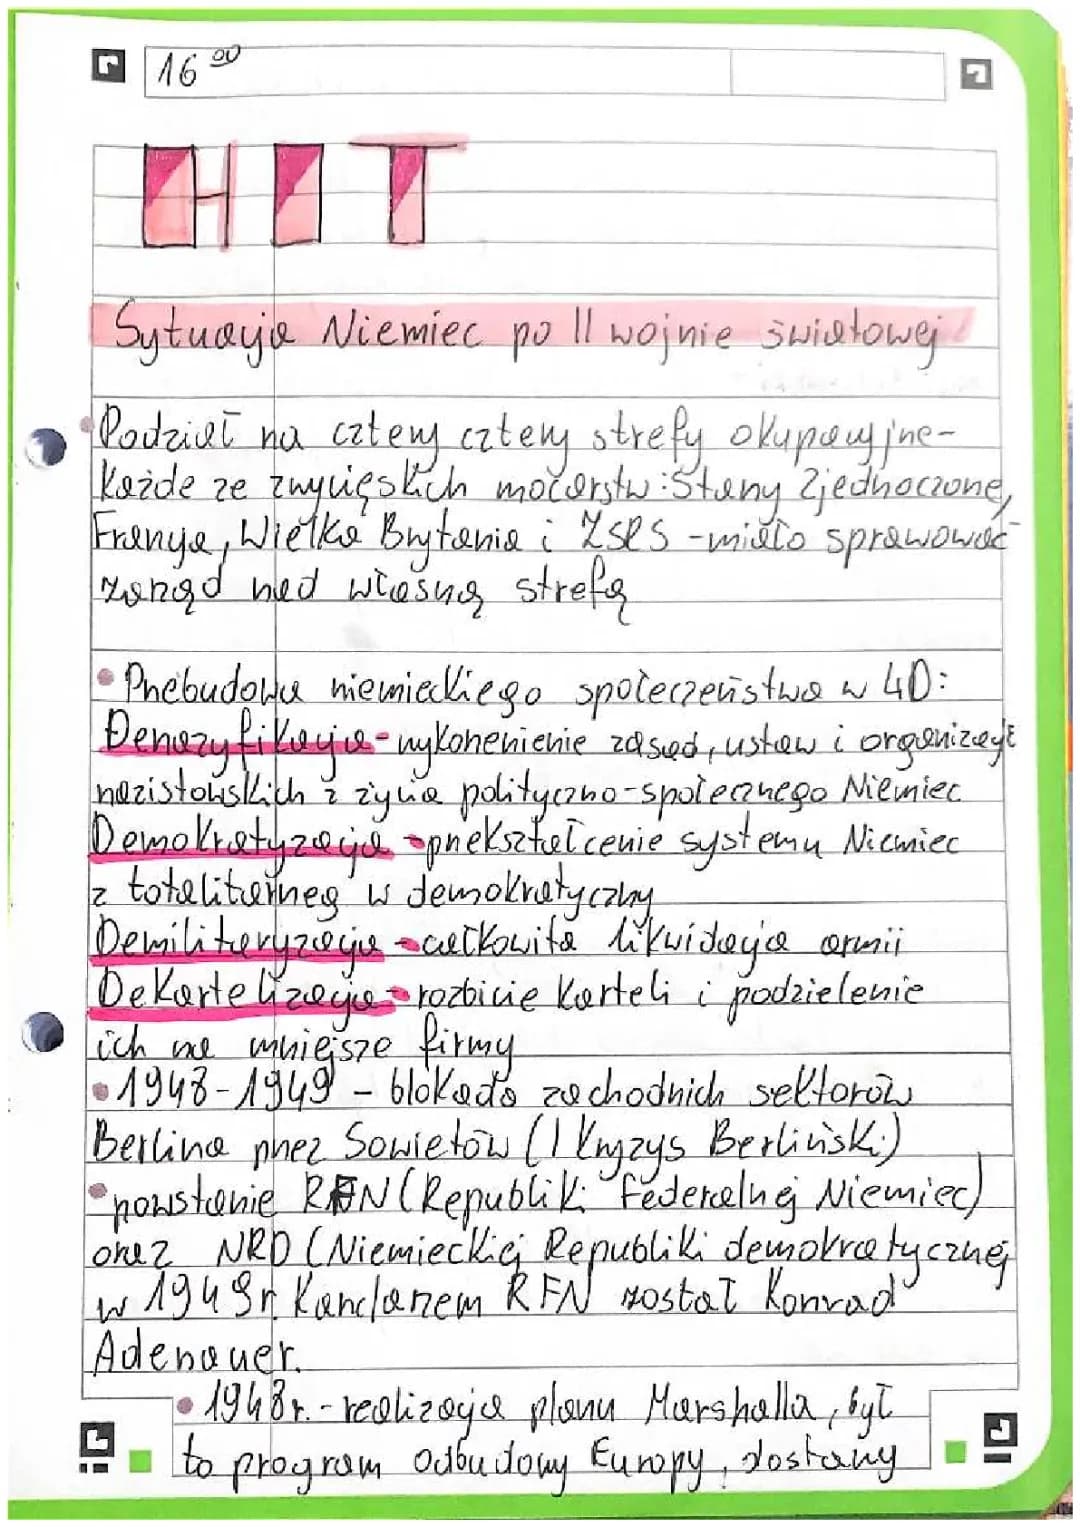 16 00
HIT
Sytuacja Niemiec po II wojnie światowej
• Podział na cztery cztery strefy okupacyjne-
Każde ze zwycięskich mocarstw: Stany Zjednoczone,
Francja, Wielka Brytania i ZSRS - miało sprawować
zarząd nad własną strefą
• Przebudowa niemieckiego społeczeństwa w 4D:
Denazyfikacja - wykonenienie zasad, ustaw i organizacji
nazistowskich z życia polityczno-społecznego Niemiec
Demokratyzacja - przekształcenie systemu Niemiec
z totalitarneg w demokratyczny
Demilitaryzacja - całkowita likwidacja armii
Dekartelizacja - rozbicie karteli i podzielenie
ich na mniejsze firmy
• 1948-1949 - blokada zachodnich sektorów
Berlina przez Sowietów (I Kryzys Berliński)
• powstanie RFN (Republiki Federalnej Niemiec)
oraz NRD (Niemieckiej Republiki demokratycznej
w 1949r. Kanclerzem RFN został Konrad
Adenauer.
• 1948r. - realizacja planu Marshalla, był
to program odbudowy Europy, dostany